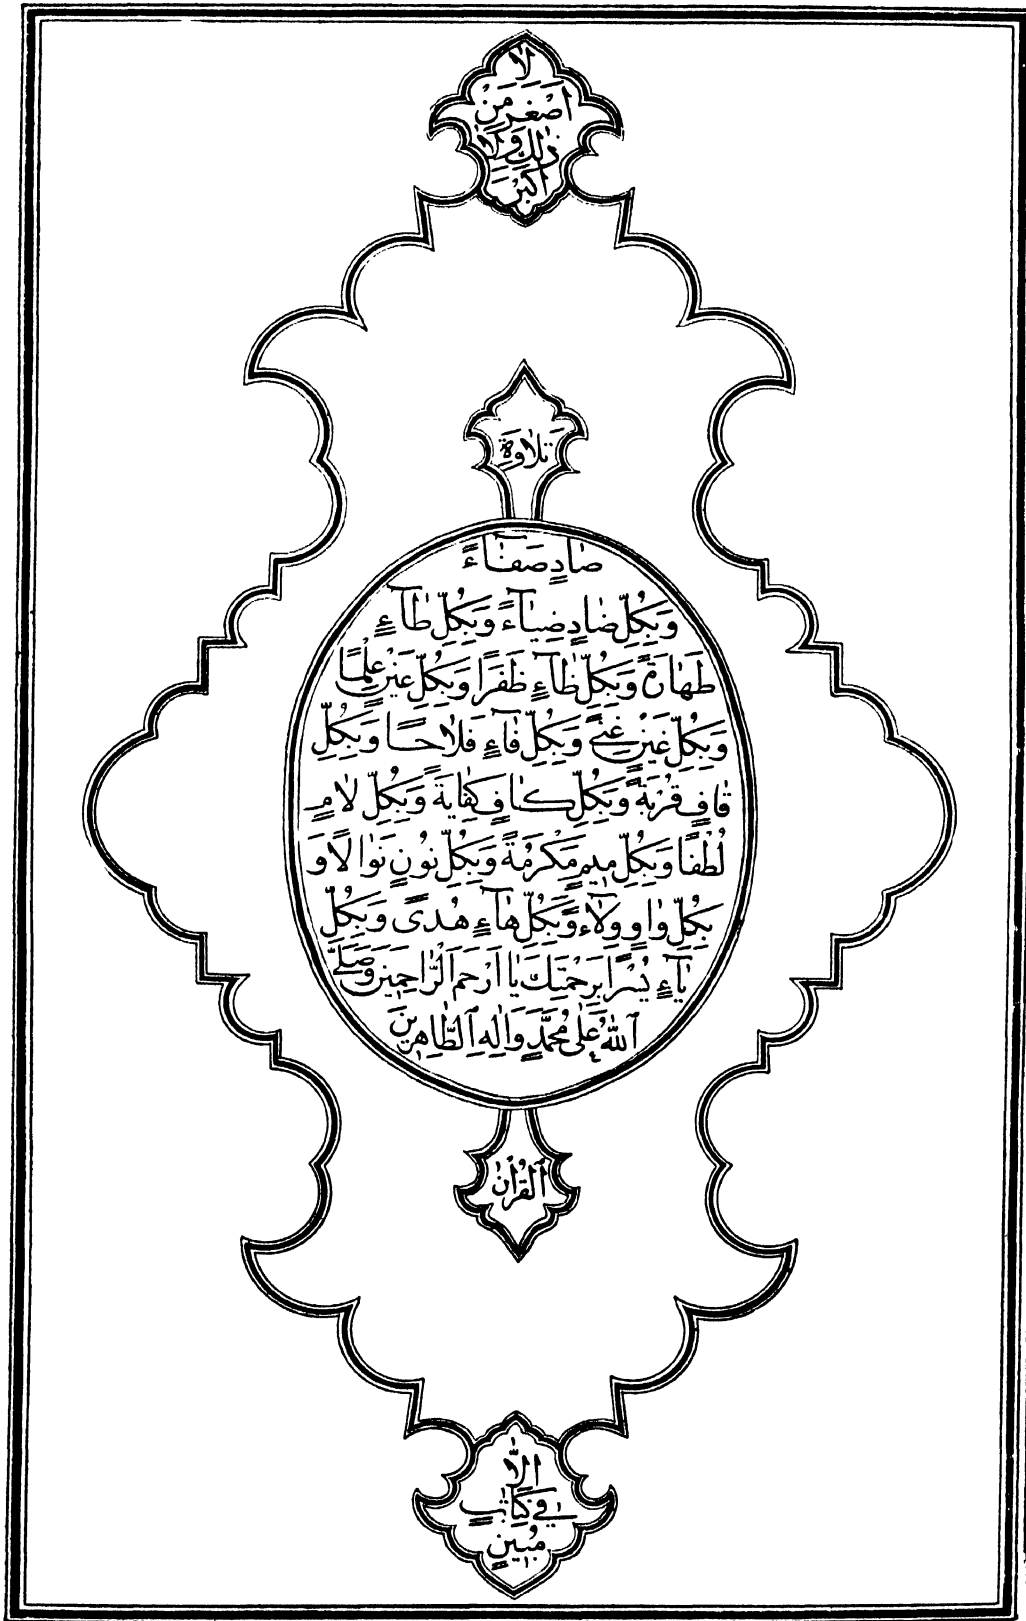 لَا
أَصْغَرَ مِنْ
ذٰلِكَ وَلَا
أَكْبَرَ
تِلَاوَةِ
صَادٍ صَفَاءً
وَبِكُلِّ ضَادٍ ضِيَاءً وَبِكُلِّ طَاءٍ
طَهَارَةً وَبِكُلِّ ظَاءٍ ظَفَرًا وَبِكُلِّ عَيْنٍ عِلْمًا
وَبِكُلِّ غَيْنٍ غِنًى وَبِكُلِّ فَاءٍ فَلَاحًا وَبِكُلِّ
قَافٍ قُرْبَةً وَبِكُلِّ كَافٍ كِفَايَةً وَبِكُلِّ لَامٍ
لُطْفًا وَبِكُلِّ مِيمٍ مَكْرُمَةً وَبِكُلِّ نُونٍ نَوَالًا وَ
بِكُلِّ وَاوٍ وِلَاءً وَبِكُلِّ هَاءٍ هُدًى وَبِكُلِّ
يَاءٍ يُسْرًا بِرَحْمَتِكَ يَا أَرْحَمَ الرَّاحِمِينَ وَصَلَّى
ٱللهُ عَلٰى مُحَمَّدٍ وَاٰلِهِ ٱلطَّاهِرِينَ
ٱلْقُرْاٰنِ
إِلَّا
فِي كِتَابٍ
مُبِينٍ